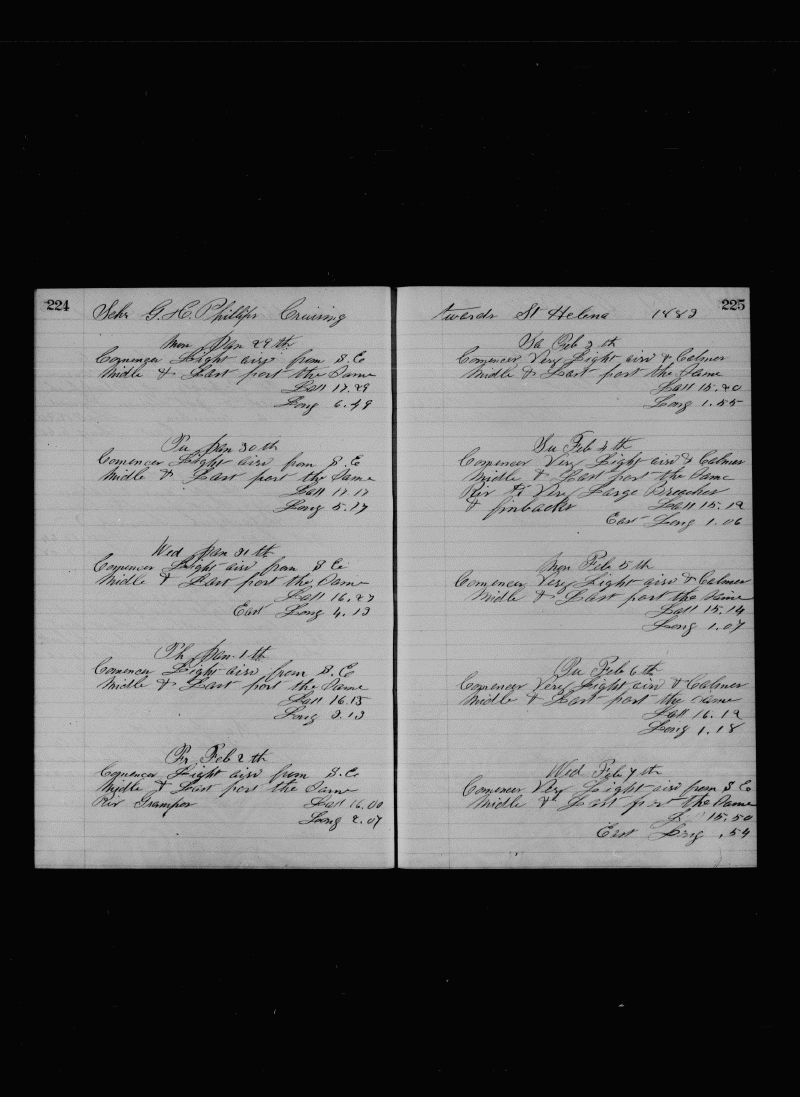 224
Schr G. H. Phillips Cruising
Mon Jan 29th
Comences Light airs from S.E
Midle & Last part the Same
Latt 17.29
Long 6.49
Tu Jan 30th
Comences Light airs from S.E
Midle & Last part the Same
Latt 17.17
Long 5.17
Wed Jan 31th
Comences Light airs from S E
Midle & Last part the Same
Latt 16.27
East Long 4.13
Th Jan 1th
Comences Light airs from S.E
Midle & Last part the Same
Latt 16.15
Long 3.13
Fr Feb 2th
Comences Light airs from S.E
Midle & Last part the Same
Latt 16.00
Long 2.07
225
twards St Helena 1883
Sa Feb 3th
Comences Very Light airs & Calmes
Midle & Last part the Same
Latt 15.20
Long 1.55
Su Feb 4th
Comences Very Light airs & Calmes
Midle & Last part the Same
Very Large Breaches
& finbacks Latt 15.12
East Long 1.06
Mon Feb 5th
Comences Very Light airs & Calmes
Midle & Last part the Same
Latt 15.14
Long 1.07
Tu Feb 6th
Comences Very Light airs & Calmes
Midle & Last part the Same
Latt 16.12
Long 1.18
Wed Feb 7th
Comences Very Light airs from S E
Midle & Last part the Same
15.50
East Long .54